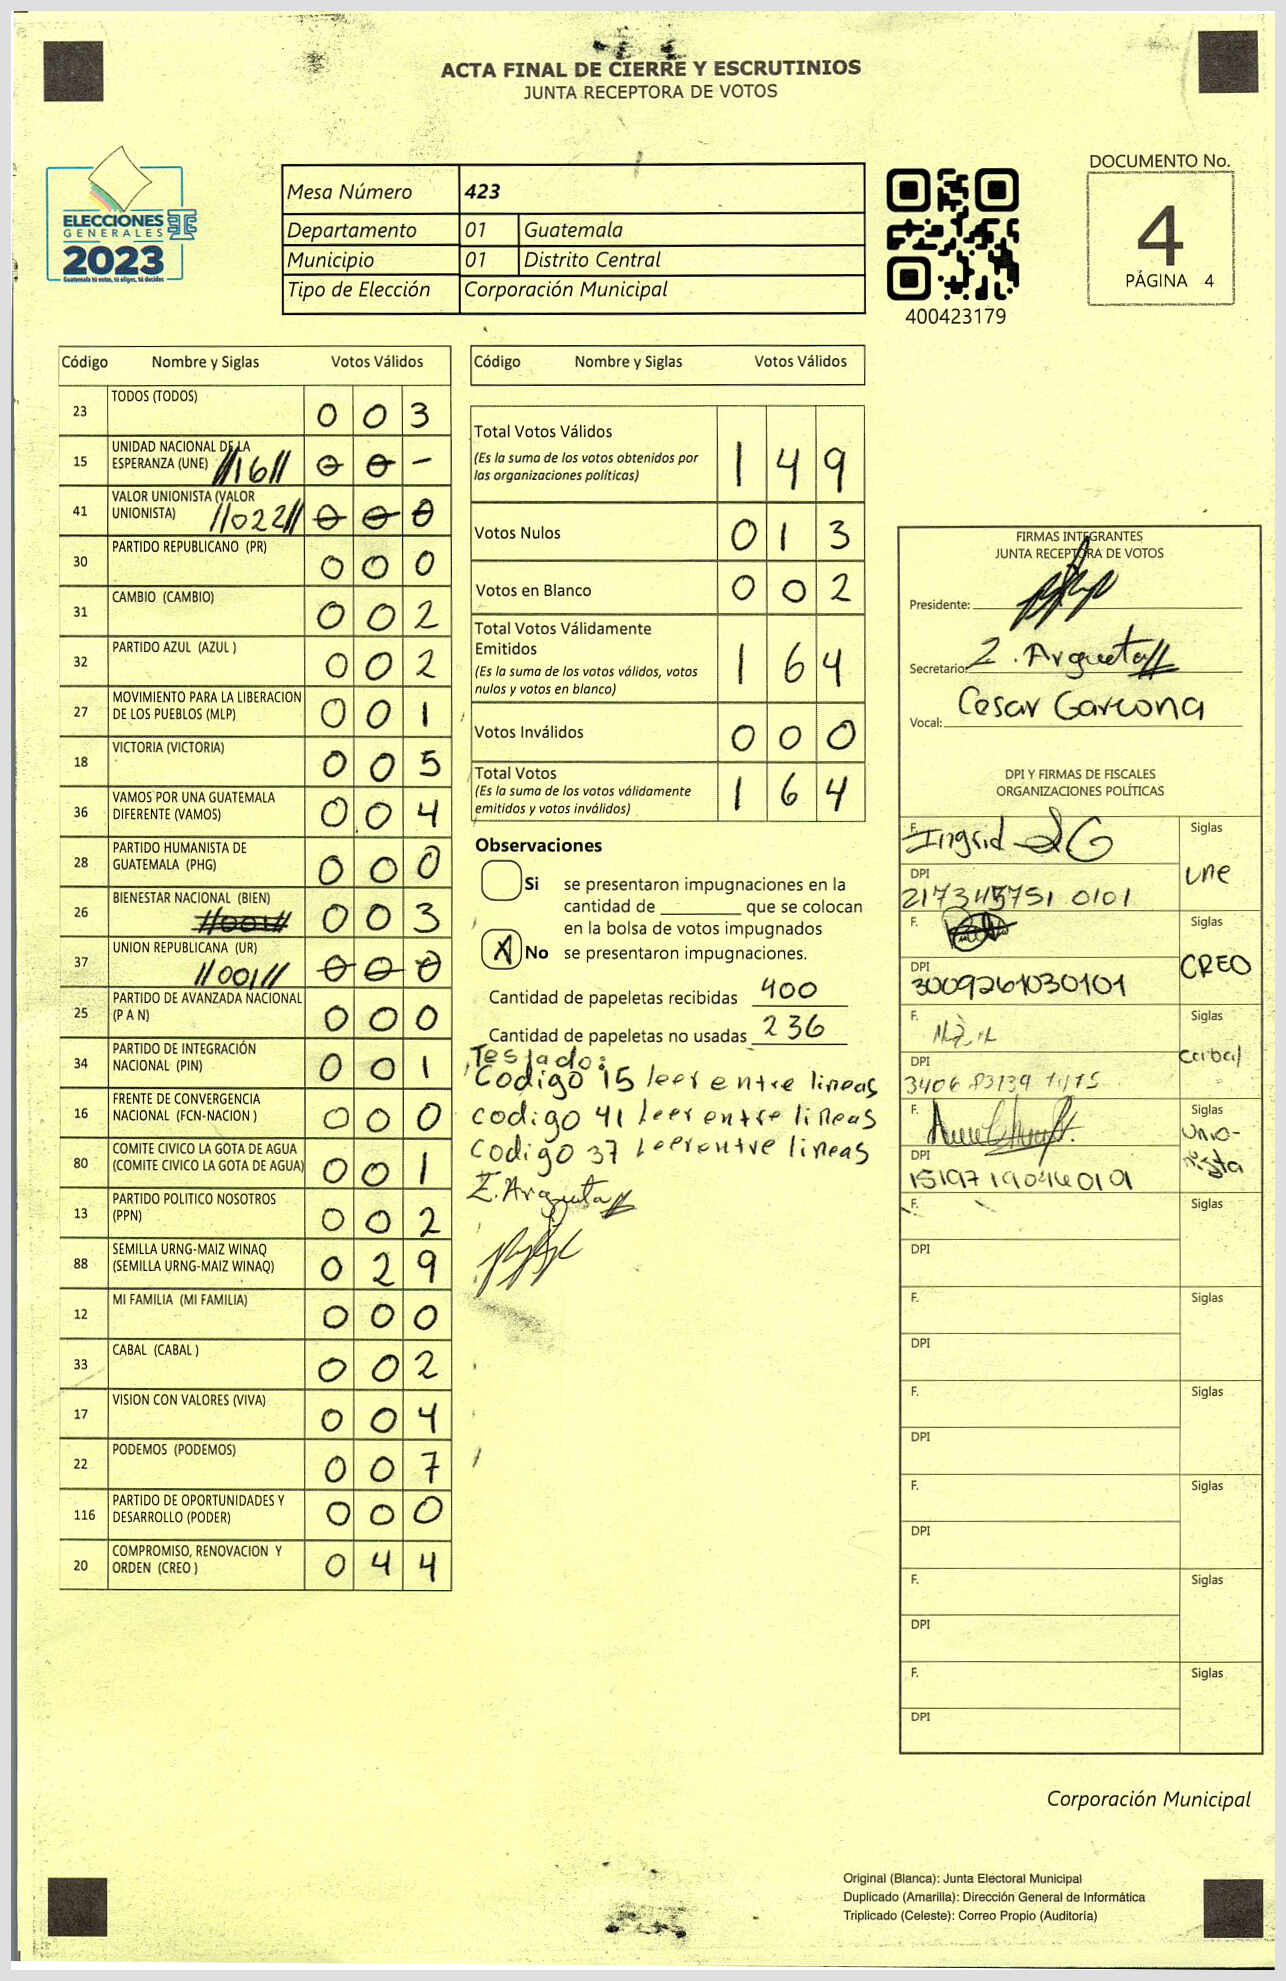 ACTA FINAL DE CIERRE Y ESCRUTINIOS
JUNTA RECEPTORA DE VOTOS
ELECCIONES
GENERALES
2023
Guatemala tú votas, tú eliges, tú decides
Mesa Número 423
Departamento 01 Guatemala
Municipio 01 Distrito Central
Tipo de Elección Corporación Municipal
400423179
DOCUMENTO No.
4
PÁGINA 4
Código Nombre y Siglas Votos Válidos
23 TODOS (TODOS) 0 0 3
15 UNIDAD NACIONAL DE LA ESPERANZA (UNE) //16// 0 0 -
41 VALOR UNIONISTA (VALOR UNIONISTA) //022// 0 0 0
30 PARTIDO REPUBLICANO (PR) 0 0 0
31 CAMBIO (CAMBIO) 0 0 2
32 PARTIDO AZUL (AZUL ) 0 0 2
27 MOVIMIENTO PARA LA LIBERACION DE LOS PUEBLOS (MLP) 0 0 1
18 VICTORIA (VICTORIA) 0 0 5
36 VAMOS POR UNA GUATEMALA DIFERENTE (VAMOS) 0 0 4
28 PARTIDO HUMANISTA DE GUATEMALA (PHG) 0 0 0
26 BIENESTAR NACIONAL (BIEN) //001// 0 0 3
37 UNION REPUBLICANA (UR) //001// 0 0 0
25 PARTIDO DE AVANZADA NACIONAL (P A N) 0 0 0
34 PARTIDO DE INTEGRACIÓN NACIONAL (PIN) 0 0 1
16 FRENTE DE CONVERGENCIA NACIONAL (FCN-NACION ) 0 0 0
80 COMITE CIVICO LA GOTA DE AGUA (COMITE CIVICO LA GOTA DE AGUA) 0 0 1
13 PARTIDO POLITICO NOSOTROS (PPN) 0 0 2
88 SEMILLA URNG-MAIZ WINAQ (SEMILLA URNG-MAIZ WINAQ) 0 2 9
12 MI FAMILIA (MI FAMILIA) 0 0 0
33 CABAL (CABAL ) 0 0 2
17 VISION CON VALORES (VIVA) 0 0 4
22 PODEMOS (PODEMOS) 0 0 7
116 PARTIDO DE OPORTUNIDADES Y DESARROLLO (PODER) 0 0 0
20 COMPROMISO, RENOVACION Y ORDEN (CREO ) 0 4 4
Código Nombre y Siglas Votos Válidos
Total Votos Válidos 1 4 9
(Es la suma de los votos obtenidos por
las organizaciones políticas)
Votos Nulos 0 1 3
Votos en Blanco 0 0 2
Total Votos Válidamente
Emitidos 1 6 4
(Es la suma de los votos válidos, votos
nulos y votos en blanco)
Votos Inválidos 0 0 0
Total Votos 1 6 4
(Es la suma de los votos válidamente
emitidos y votos inválidos)
Observaciones
Si se presentaron impugnaciones en la
cantidad de ________ que se colocan
en la bolsa de votos impugnados
X No se presentaron impugnaciones.
Cantidad de papeletas recibidas 400
Cantidad de papeletas no usadas 236
Testado:
Codigo 15 leer entre lineas
codigo 41 leer entre lineas
Codigo 37 leer entre lineas
Z. Argueta
FIRMAS INTEGRANTES
JUNTA RECEPTORA DE VOTOS
Presidente:
Secretario: Z. Argueta
Vocal: Cesar Garcona
DPI Y FIRMAS DE FISCALES
ORGANIZACIONES POLÍTICAS
F. Ingrid Siglas
DPI une
217345751 0101
F. Siglas
DPI CREO
3009261030101
F. Siglas
DPI cabal
F. Siglas
DPI Unio-
nista
F. Siglas
DPI
F. Siglas
DPI
F. Siglas
DPI
F. Siglas
DPI
F. Siglas
DPI
F. Siglas
DPI
Corporación Municipal
Original (Blanca): Junta Electoral Municipal
Duplicado (Amarilla): Dirección General de Informática
Triplicado (Celeste): Correo Propio (Auditoría)